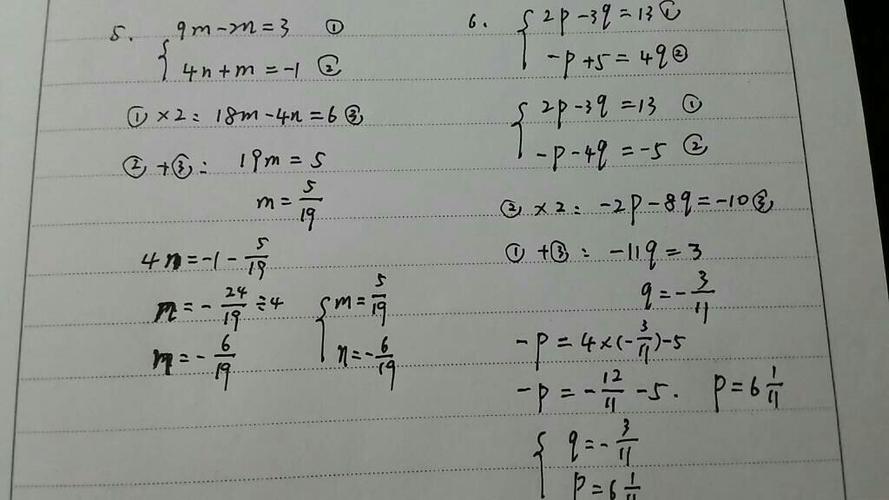 5. { 9m-2n=3 ①
4n+m=-1 ②
①×2: 18m-4n=6 ③
②+③: 19m=5
m=5/19
4n=-1-5/19
n=-24/19÷4
n=-6/19
{ m=5/19
n=-6/19
6. { 2p-3q=13 ①
-p+5=4q ②
{ 2p-3q=13 ①
-p-4q=-5 ②
②×2: -2p-8q=-10 ③
①+③: -11q=3
q=-3/11
-p=4×(-3/11)-5
-p=-12/11-5. p=6 1/11
{ q=-3/11
p=6 1/11